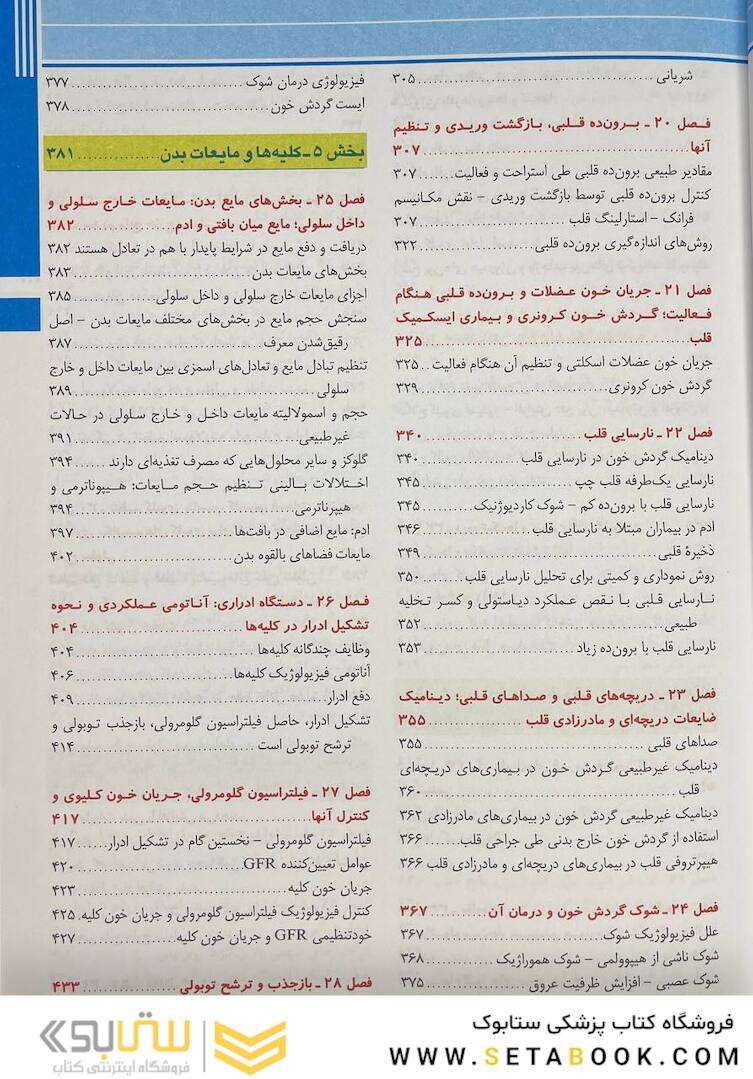 شریانی ........ ۳۰۵
فصل ۲۰ ـ برون‌ده قلبی، بازگشت وریدی و تنظیم
آنها ........ ۳۰۷
مقادیر طبیعی برون‌ده قلبی طی استراحت و فعالیت ........ ۳۰۷
کنترل برون‌ده قلبی توسط بازگشت وریدی – نقش مکانیسم
فرانک – استارلینگ قلب ........ ۳۰۷
روش‌های اندازه‌گیری برون‌ده قلبی ........ ۳۲۲
فصل ۲۱ ـ جریان خون عضلات و برون‌ده قلبی هنگام
فعالیت؛ گردش خون کرونری و بیماری ایسکمیک
قلب ........ ۳۲۵
جریان خون عضلات اسکلتی و تنظیم آن هنگام فعالیت .. ۳۲۵
گردش خون کرونری ........ ۳۲۹
فصل ۲۲ ـ نارسایی قلب ........ ۳۴۰
دینامیک گردش خون در نارسایی قلب ........ ۳۴۰
نارسایی یک‌طرفه قلب چپ ........ ۳۴۵
نارسایی قلب با برون‌ده کم – شوک کاردیوژنیک ........ ۳۴۵
ادم در بیماران مبتلا به نارسایی قلب ........ ۳۴۶
ذخیرهٔ قلبی ........ ۳۴۹
روش نموداری و کمیتی برای تحلیل نارسایی قلب ........ ۳۵۰
نارسایی قلبی با نقص عملکرد دیاستولی و کسر تخلیه
طبیعی ........ ۳۵۲
نارسایی قلب با برون‌ده زیاد ........ ۳۵۳
فصل ۲۳ ـ دریچه‌های قلبی و صداهای قلبی؛ دینامیک
ضایعات دریچه‌ای و مادرزادی قلب ........ ۳۵۵
صداهای قلبی ........ ۳۵۵
دینامیک غیرطبیعی گردش خون در بیماری‌های دریچه‌ای
قلب ........ ۳۶۰
دینامیک غیرطبیعی گردش خون در بیماری‌های مادرزادی ۳۶۲
استفاده از گردش خون خارج بدنی طی جراحی قلب ........ ۳۶۶
هیپرتروفی قلب در بیماری‌های دریچه‌ای و مادرزادی قلب ۳۶۶
فصل ۲۴ ـ شوک گردش خون و درمان آن ........ ۳۶۷
علل فیزیولوژیک شوک ........ ۳۶۷
شوک ناشی از هیپوولمی – شوک هموراژیک ........ ۳۶۸
شوک عصبی – افزایش ظرفیت عروق ........ ۳۷۵
فیزیولوژی درمان شوک ........ ۳۷۷
ایست گردش خون ........ ۳۷۸
بخش ۵ ـ کلیه‌ها و مایعات بدن ........ ۳۸۱
فصل ۲۵ ـ بخش‌های مایع بدن: مایعات خارج سلولی و
داخل سلولی؛ مایع میان بافتی و ادم ........ ۳۸۲
دریافت و دفع مایع در شرایط پایدار با هم در تعادل هستند ۳۸۲
بخش‌های مایعات بدن ........ ۳۸۳
اجزای مایعات خارج سلولی و داخل سلولی ........ ۳۸۵
سنجش حجم مایع در بخش‌های مختلف مایعات بدن – اصل
رقیق‌شدن معرف ........ ۳۸۷
تنظیم تبادل مایع و تعادل‌های اسمزی بین مایعات داخل و خارج
سلولی ........ ۳۸۹
حجم و اسمولالیته مایعات داخل و خارج سلولی در حالات
غیرطبیعی ........ ۳۹۱
گلوکز و سایر محلول‌هایی که مصرف تغذیه‌ای دارند ........ ۳۹۴
اختلالات بالینی تنظیم حجم مایعات: هیپوناترمی و
هیپرناترمی ........ ۳۹۴
ادم: مایع اضافی در بافت‌ها ........ ۳۹۷
مایعات فضاهای بالقوه بدن ........ ۴۰۲
فصل ۲۶ ـ دستگاه ادراری: آناتومی عملکردی و نحوه
تشکیل ادرار در کلیه‌ها ........ ۴۰۴
وظایف چندگانه کلیه‌ها ........ ۴۰۴
آناتومی فیزیولوژیک کلیه‌ها ........ ۴۰۶
دفع ادرار ........ ۴۰۹
تشکیل ادرار، حاصل فیلتراسیون گلومرولی، بازجذب توبولی و
ترشح توبولی است ........ ۴۱۴
فصل ۲۷ ـ فیلتراسیون گلومرولی، جریان خون کلیوی و
کنترل آنها ........ ۴۱۷
فیلتراسیون گلومرولی – نخستین گام در تشکیل ادرار ........ ۴۱۷
عوامل تعیین‌کننده GFR ........ ۴۲۰
جریان خون کلیه ........ ۴۲۳
کنترل فیزیولوژیک فیلتراسیون گلومرولی و جریان خون کلیه. ۴۲۵
خودتنظیمی GFR و جریان خون کلیه ........ ۴۲۷
فصل ۲۸ ـ بازجذب و ترشح توبولی ........ ۴۳۳
فروشگاه کتاب پزشکی ستابوک
WWW.SETABOOK.COM
ستابوک
فروشگاه اینترنتی کتاب